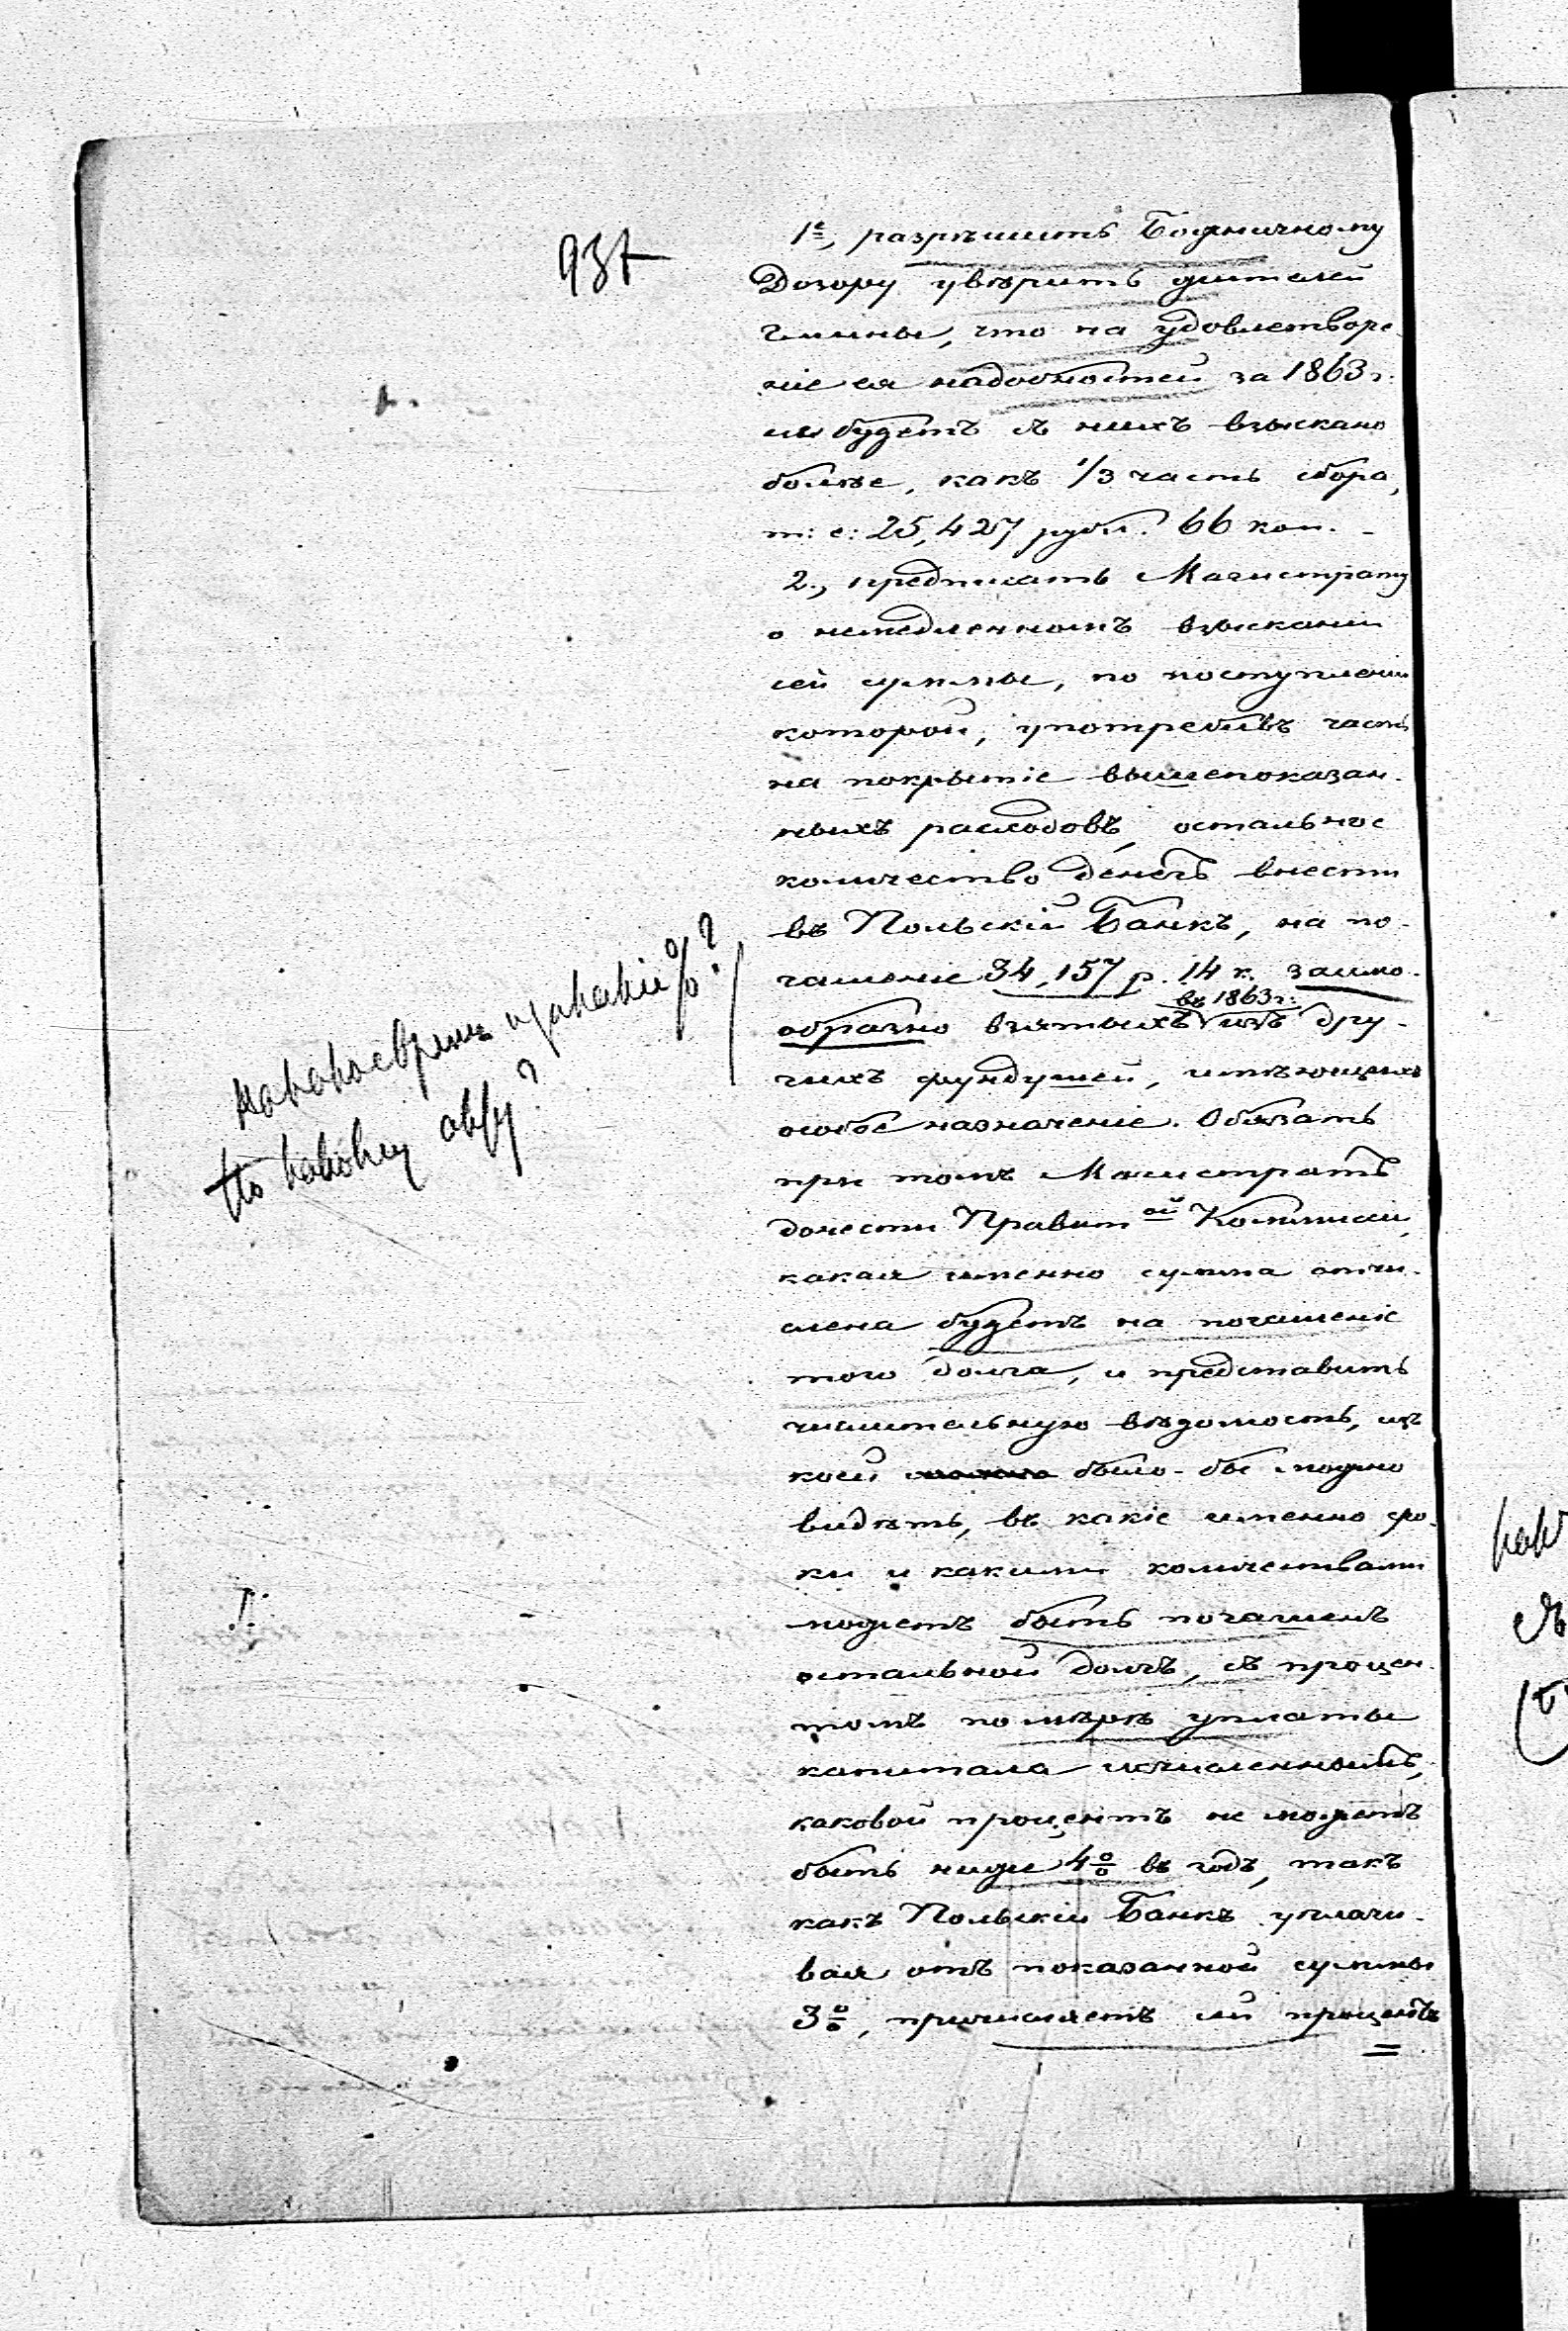 937
1<sup>е</sup>, разрѣшить Божничному
Дозору увѣрить жителей
гмины, что на удовлетворе-
ніе ея надобностей за 1863 г.
не будетъ съ нихъ взыскано
болѣе, какъ 1/3 часть сбора,
т: е: 25,427 рубл. 66 коп. -
2., предписать Магистрату
о немедленномъ взысканіи
сей суммы, по поступленіи
которой, употребивъ часть
на покрытіе вышепоказан-
ныхъ расходовъ, остальное
количество денегъ внести
въ Польскій Банкъ, на по-
гашеніе 34,157 р. 14 к. заимо-
образно взятыхъ въ 1863 г. изъ дру-
гихъ фундушей, имѣющихъ
особое назначеніе. Обязать
при томъ Магистратъ
донести Правит<sup>ой</sup> Коммисіи,
какая именно сумма отчи-
слена будетъ на погашеніе
того долга, и представить
числительную вѣдомость, изъ
коей было-бы можно
видѣть, въ какіе именно сро-
ки и какими количествами
можетъ быть погашенъ
остальной долгъ, съ процен-
томъ по мѣрѣ уплаты
капитала исчисленнымъ,
каковой процентъ не можетъ
быть ниже 4% въ годъ, такъ
какъ Польскій Банкъ уплачи-
вая отъ показанной суммы
3%, причисляетъ сей процентъ
на какое время и за какіе %?
По какому